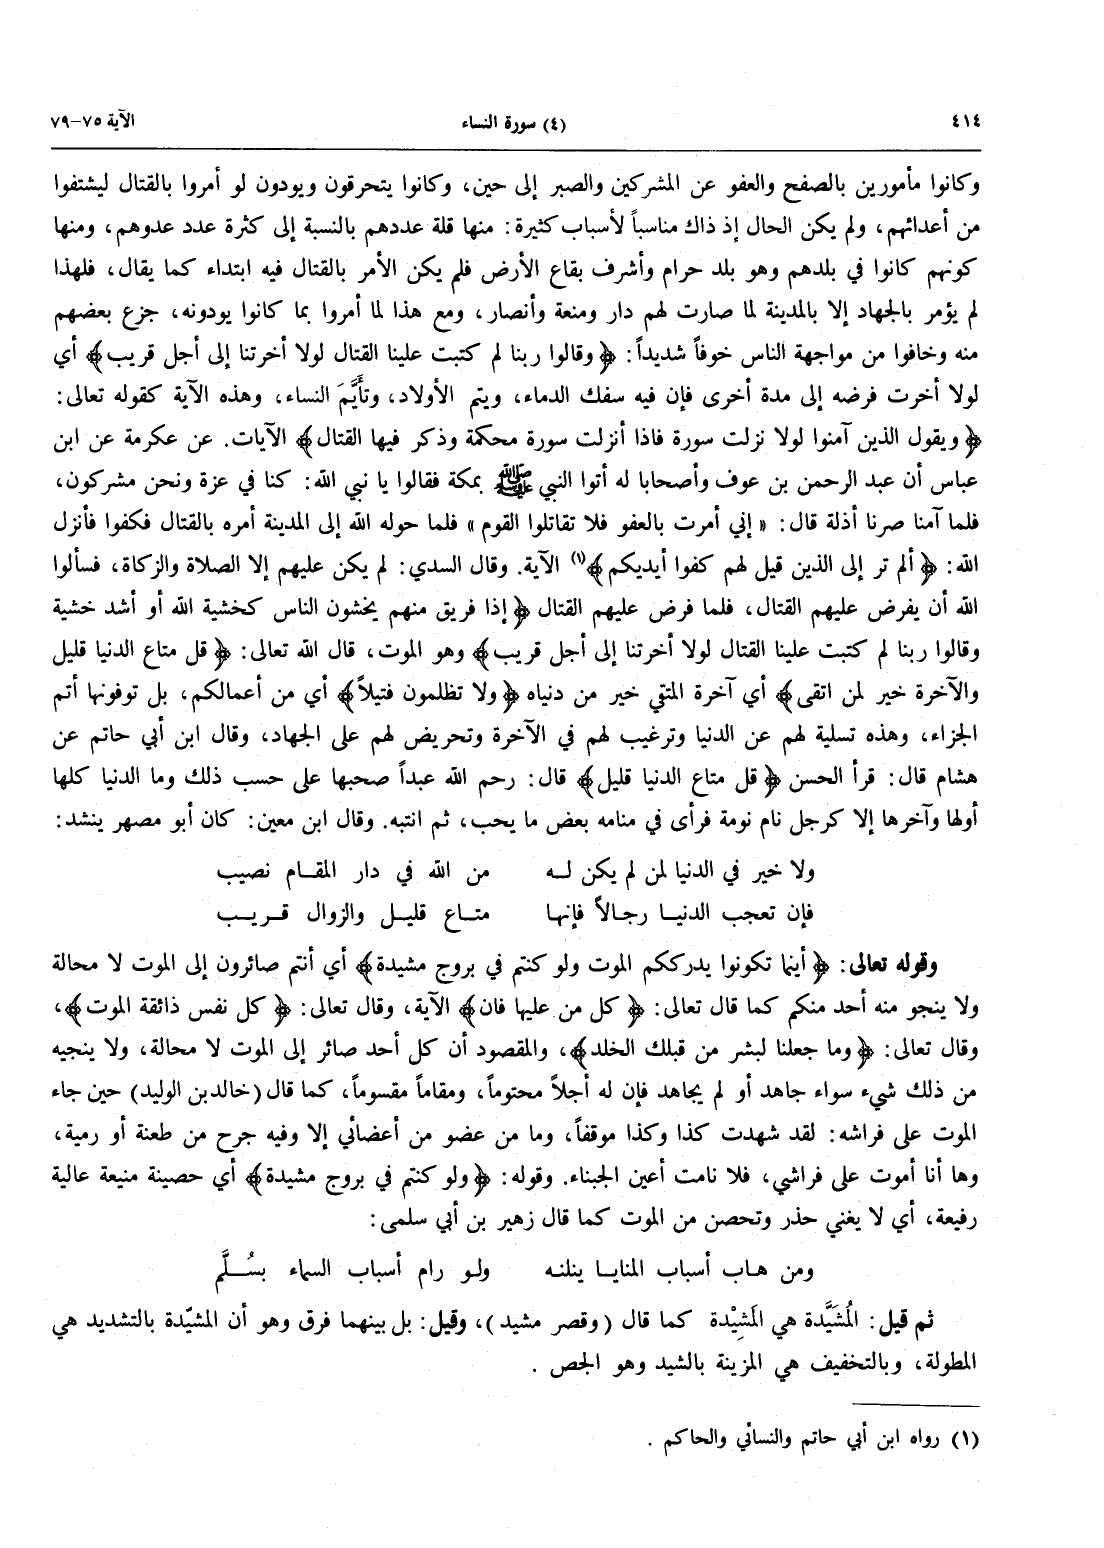 ٤١٤ (٤) سورة النساء الآية ٧٥-٧٩
وكانوا مأمورين بالصفح والعفو عن المشركين والصبر إلى حين، وكانوا يتحرقون ويودون لو أمروا بالقتال ليشتفوا
من أعدائهم، ولم يكن الحال إذ ذاك مناسباً لأسباب كثيرة: منها قلة عددهم بالنسبة إلى كثرة عدد عدوهم، ومنها
كونهم كانوا في بلدهم وهو بلد حرام وأشرف بقاع الأرض فلم يكن الأمر بالقتال فيه ابتداء كما يقال، فلهذا
لم يؤمر بالجهاد إلا بالمدينة لما صارت لهم دار ومنعة وأنصار، ومع هذا لما أمروا بما كانوا يودونه، جزع بعضهم
منه وخافوا من مواجهة الناس خوفاً شديداً: ﴿وقالوا ربنا لم كتبت علينا القتال لولا أخرتنا إلى أجل قريب﴾ أي
لولا أخرت فرضه إلى مدة أخرى فإن فيه سفك الدماء، ويتم الأولاد، وتأيُّمَ النساء، وهذه الآية كقوله تعالى:
﴿ويقول الذين آمنوا لولا نزلت سورة فاذا أنزلت سورة محكمة وذكر فيها القتال﴾ الآيات. عن عكرمة عن ابن
عباس أن عبد الرحمن بن عوف وأصحابا له أتوا النبي ﷺ بمكة فقالوا يا نبي الله: كنا في عزة ونحن مشركون،
فلما آمنا صرنا أذلة قال: «إني أمرت بالعفو فلا تقاتلوا القوم» فلما حوله الله إلى المدينة أمره بالقتال فكفوا فأنزل
الله: ﴿ألم تر إلى الذين قيل لهم كفوا أيديكم﴾(١) الآية. وقال السدي: لم يكن عليهم إلا الصلاة والزكاة، فسألوا
الله أن يفرض عليهم القتال، فلما فرض عليهم القتال ﴿إذا فريق منهم يخشون الناس كخشية الله أو أشد خشية
وقالوا ربنا لم كتبت علينا القتال لولا أخرتنا إلى أجل قريب﴾ وهو الموت، قال الله تعالى: ﴿قل متاع الدنيا قليل
والآخرة خير لمن اتقى﴾ أي آخرة المتقي خير من دنياه ﴿ولا تظلمون فتيلاً﴾ أي من أعمالكم، بل توفونها أتم
الجزاء، وهذه تسلية لهم عن الدنيا وترغيب لهم في الآخرة وتحريض لهم على الجهاد، وقال ابن أبي حاتم عن
هشام قال: قرأ الحسن ﴿قل متاع الدنيا قليل﴾ قال: رحم الله عبداً صحبها على حسب ذلك وما الدنيا كلها
أولها وآخرها إلا كرجل نام نومة فرأى في منامه بعض ما يحب، ثم انتبه. وقال ابن معين: كان أبو مصهر ينشد:
ولا خير في الدنيا لمن لم يكن لــه من الله في دار المقــام نصيب
فإن تعجب الدنيــا رجــالاً فإنها متــاع قليــل والزوال قــريــب
وقوله تعالى: ﴿أينما تكونوا يدرككم الموت ولو كنتم في بروج مشيدة﴾ أي أنتم صائرون إلى الموت لا محالة
ولا ينجو منه أحد منكم كما قال تعالى: ﴿كل من عليها فان﴾ الآية، وقال تعالى: ﴿كل نفس ذائقة الموت﴾،
وقال تعالى: ﴿وما جعلنا لبشر من قبلك الخلد﴾، والمقصود أن كل أحد صائر إلى الموت لا محالة، ولا ينجيه
من ذلك شيء سواء جاهد أو لم يجاهد فإن له أجلاً محتوماً، ومقاماً مقسوماً، كما قال (خالد بن الوليد) حين جاء
الموت على فراشه: لقد شهدت كذا وكذا موقفاً، وما من عضو من أعضائي إلا وفيه جرح من طعنة أو رمية،
وها أنا أموت على فراشي، فلا نامت أعين الجبناء. وقوله: ﴿ولو كنتم في بروج مشيدة﴾ أي حصينة منيعة عالية
رفيعة، أي لا يغني حذر وتحصن من الموت كما قال زهير بن أبي سلمى:
ومن هــاب أسباب المنايــا ينلنــه ولــو رام أسباب السماء بسُــلَّم
ثم قيل: المُشَيَّدة هي المَشِيْدة كما قال (وقصر مشيد)، وقيل: بل بينهما فرق وهو أن المشيّدة بالتشديد هي
المطولة، وبالتخفيف هي المزينة بالشيد وهو الجص.
(١) رواه ابن أبي حاتم والنسائي والحاكم.